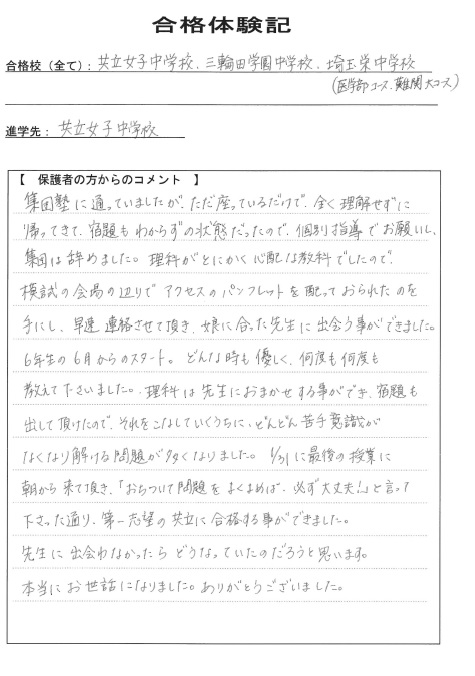 合格体験記
合格校（全て）: 共立女子中学校、三輪田学園中学校、埼玉栄中学校
(医学部コース、難関大コース)
進学先： 共立女子中学校
【 保護者の方からのコメント 】
集団塾に通っていましたが、ただ座っているだけで、全く理解せずに
帰ってきて、宿題もわからずの状態だったので、個別指導でお願いし、
集団は辞めました。理科がとにかく心配な教科でしたので、
模試の会場の辺りでアクセスのパンフレットを配っておられたのを
手にし、早速連絡させて頂き、娘に合った先生に出会う事ができました。
6年生の6月からのスタート。どんな時も優しく、何度も何度も
教えて下さいました。理科は先生におまかせする事ができ、宿題も
出して頂けたので、それをこなしていくうちに、どんどん苦手意識が
なくなり解ける問題が多くなりました。1/31に最後の授業に
朝から来て頂き、「おちついて問題をよくよめば、必ず大丈夫！」と言って
下さった通り、第一志望の共立に合格する事ができました。
先生に出会わなかったらどうなっていたのだろうと思います。
本当にお世話になりました。ありがとうございました。